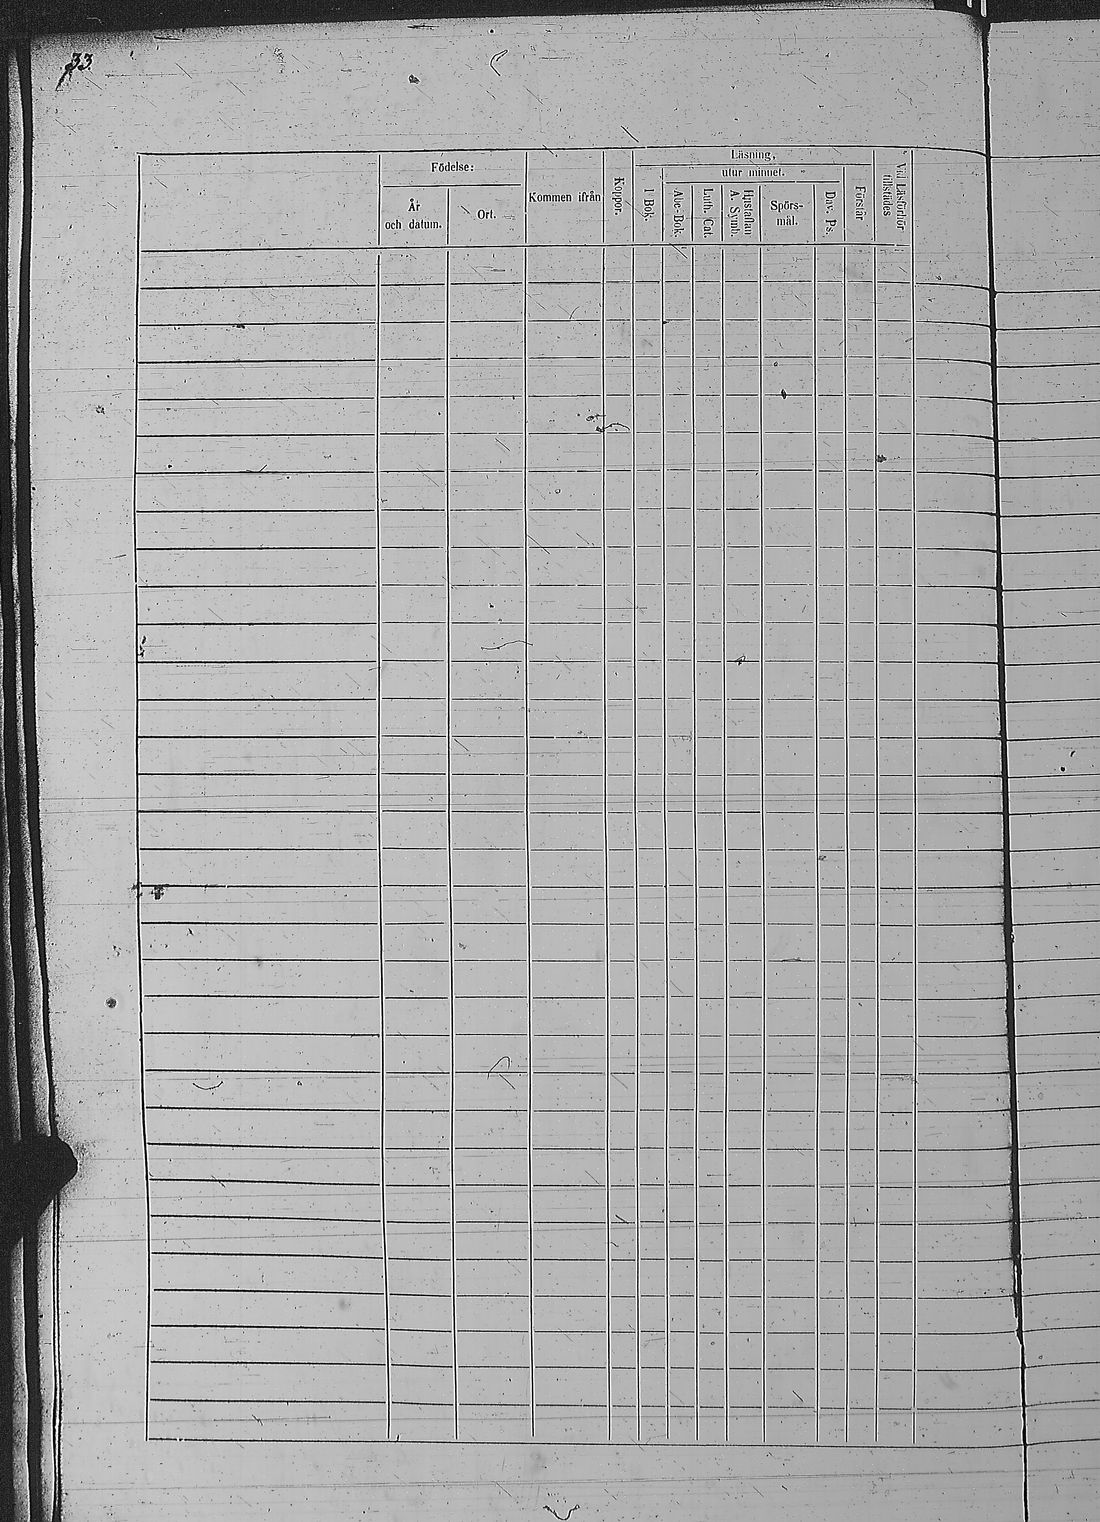 33.
Födelse:
År
och datum.
Ort.
Kommen ifrån
Koppor.
Läsning,
I Bok.
utur minnet.
Abc-Bok.
Luth. Cat.
Hustaflan
A. Symb.
Spörs-
mål.
Dav. Ps.
Förstår
Vid Läsförhör
tillstädes